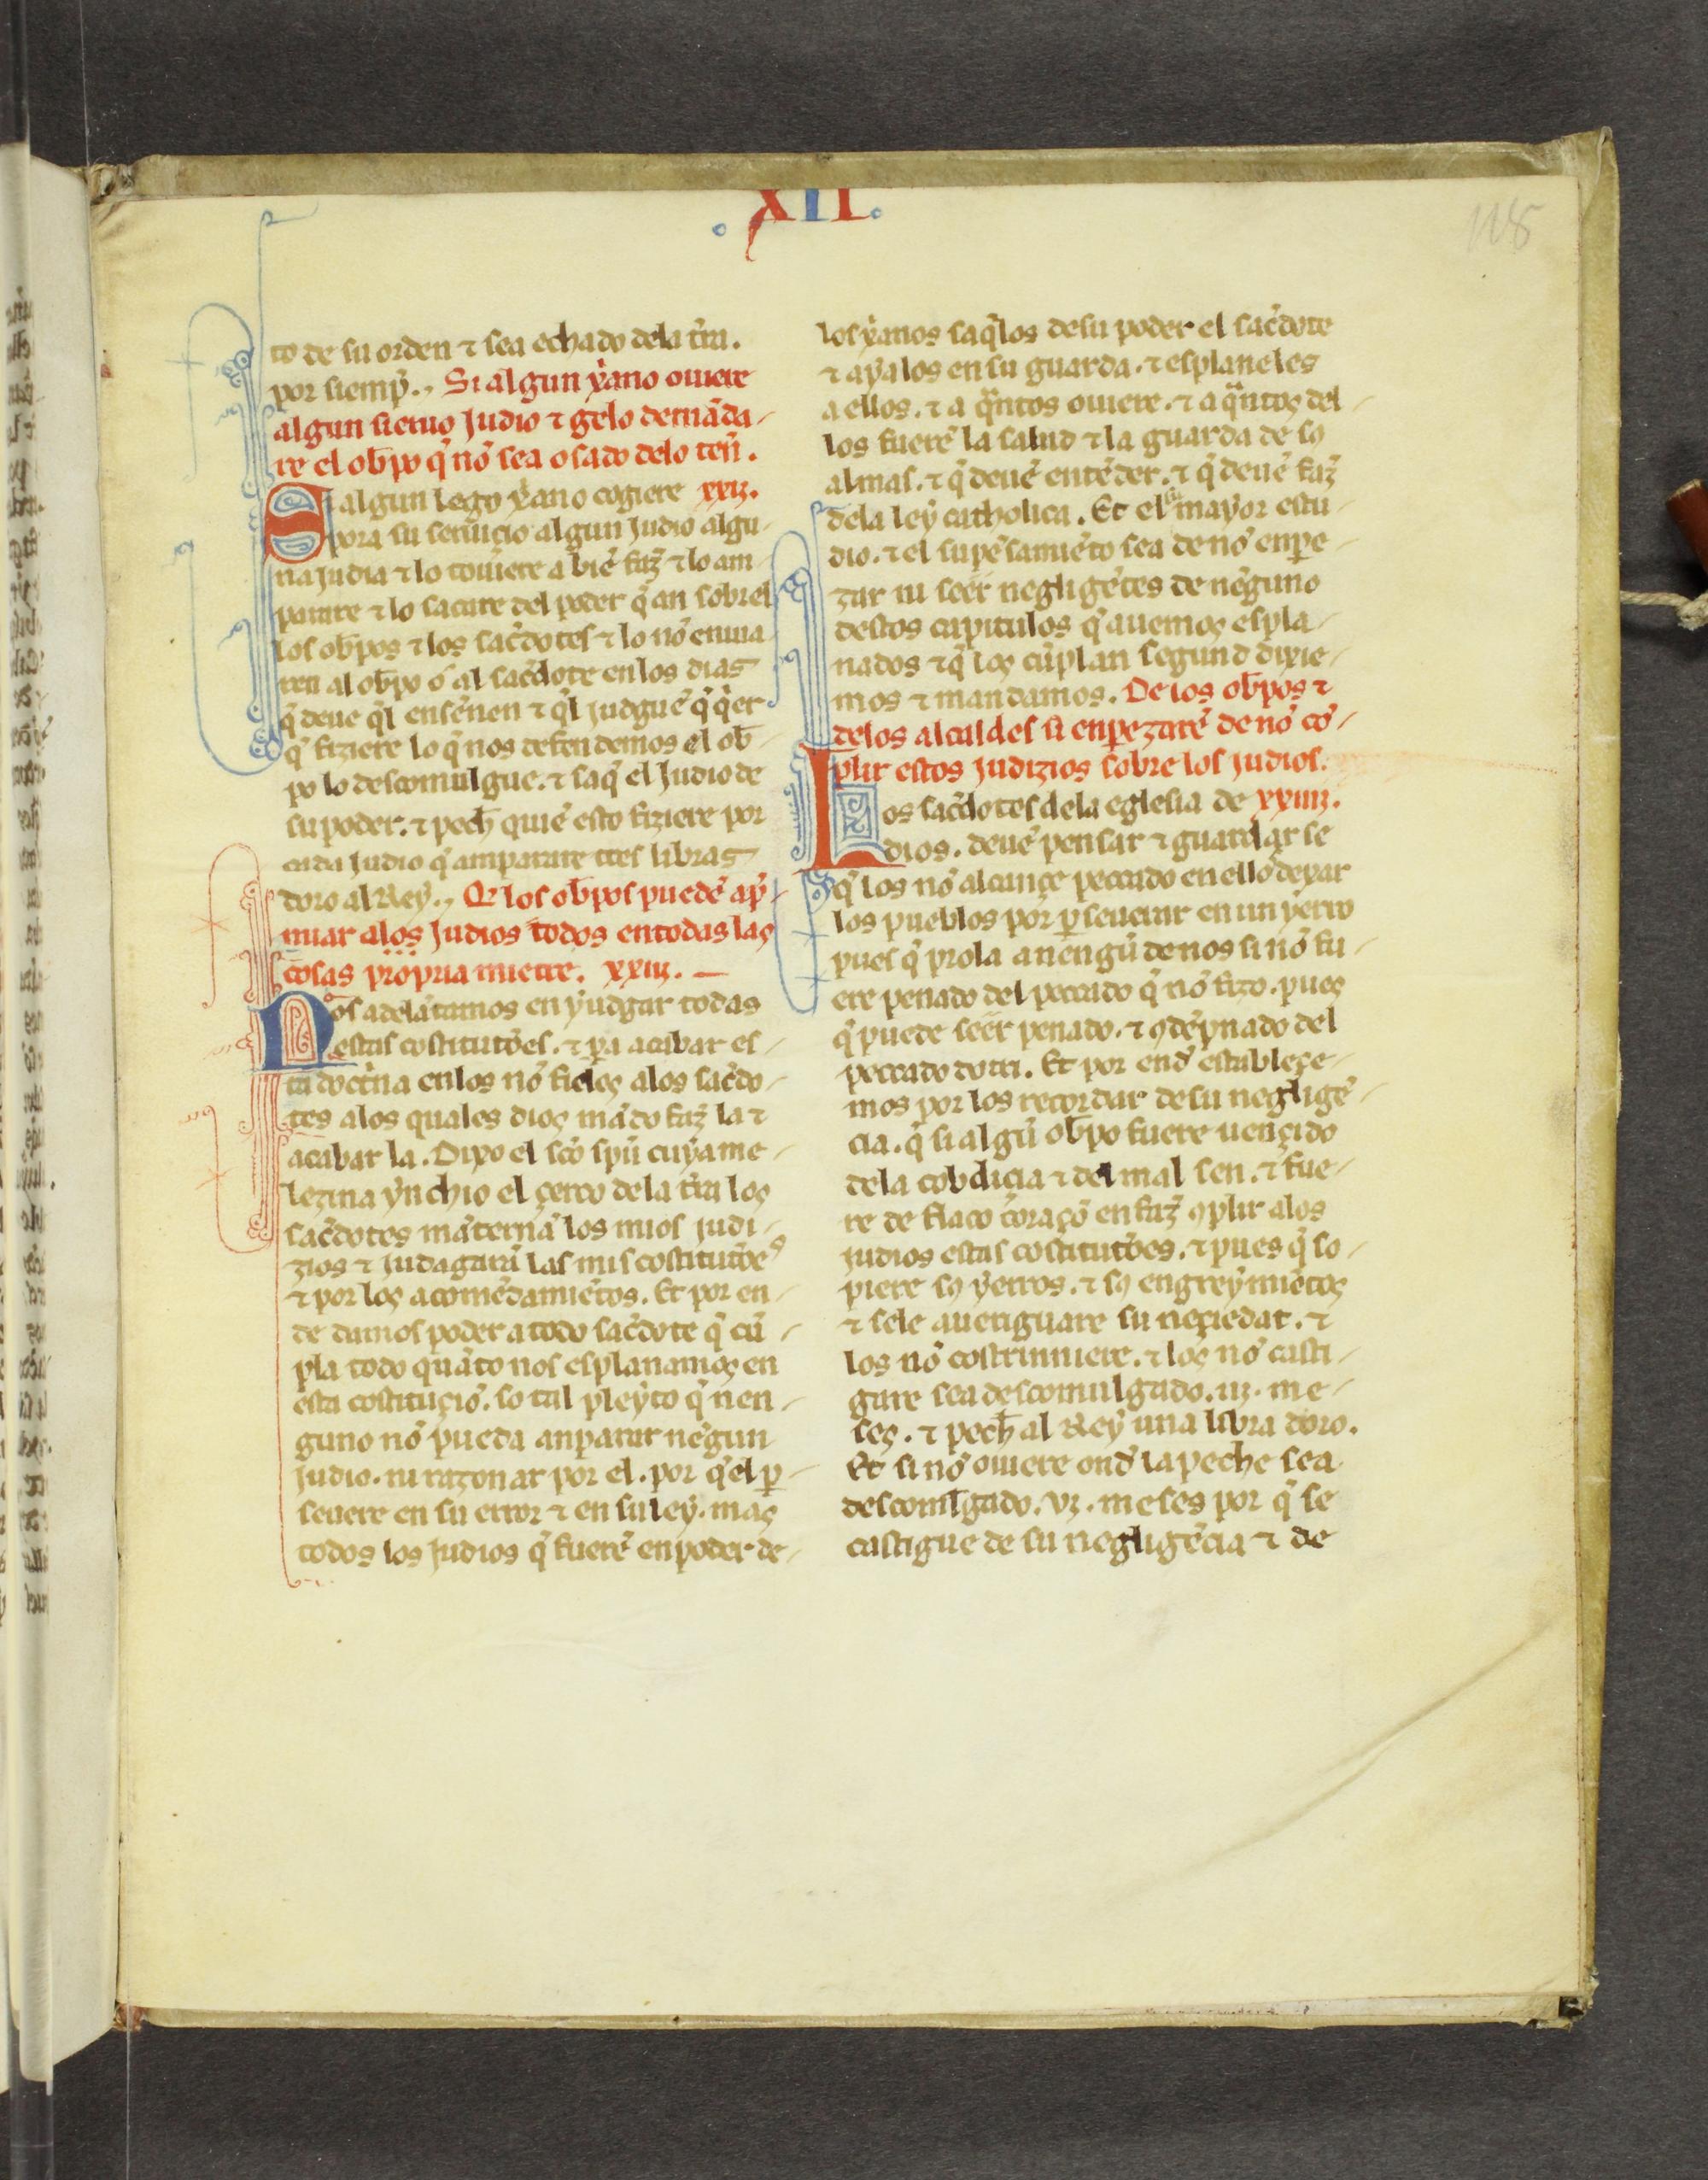 .XII.
118
to de su orden ⁊ sea echado dela tr̃ra.
por siemp̃., Si algun xp̃ano ouiere
algun sieruo Judio ⁊ gelo demãda-
re el ob̃po q̃ nõ sea osado delo ten̄.
Si algun lego xp̃ano cogiere xxij.
pora su seruiçio algun Judio algu-
na Judia ⁊ lo touiere a biẽ faz̄ ⁊ lo am-
parare ⁊ lo sacare del poder q̃ an sobrel
los ob̃pos ⁊ los sac̃dotes ⁊ lo nõ enuia-
ren al ob̃po o al sac̃dote en los dias
q̃ deue q̃l enseñen ⁊ q̃l judguẽ q̃ q̃er
q̃ fiziere lo q̃ nos defendemos el ob̃-
po lo descomulgue. ⁊ saq̃ el Judio de
su poder. ⁊ pech̃ quiẽ esto fiziere por
cada Judio q̃ amparare tres libras
doro al Rey., Q̃ los ob̃pos puedẽ ap̃-
miar alos Judios todos en todas las
cosas propria miẽtre. xxiij.
Nos adelãtamos en yudgar todas
estas costitutões. ⁊ pa acabar es-
ta doct̃na en los nõ fieles alos sac̃do-
tes alos quales dios mãdo faz̄ la ⁊
acabar la. Dixo el sc̃o sp̃u cuya me-
lezina ynchio el çerco dela tr̃ra los
sac̃dotes mãternã los mios judi-
zios ⁊ Judagarã las mis costitutões
⁊ por los acomẽdamiẽtos. Et por en-
de damos poder a todo sac̃dote q̃ cũ-
pla todo quãto nos esplanamos en
esta costituçiõ. so tal pleyto q̃ nen-
guno nõ pueda anparar nẽgun
Judio. ni razonar por el. por q̃ el p̱-
seuere en su error ⁊ en su ley. mas
todos los Judios q̃ fuerẽ en poder de-
los xp̃anos saq̃los de su poder el sac̃dote
⁊ aya los en su guarda. ⁊ esplaneles
a ellos. ⁊ a q̃ntos ouiere. ⁊ a q̃ntos del-
los fuerẽ la salud ⁊ la guarda de sꝯ
almas. ⁊ q̃ deuẽ entẽder. ⁊ q̃ deuẽ faz̄
dela ley catholica. Et el su mayor estu-
dio. ⁊ el su pẽsamiẽto sea de nõ enpe-
zar ni seer negligẽtes de nẽguno
destos capitulos q̃ auemos espla-
nados ⁊ q̃ los cũplan segund dixie-
mos ⁊ mandamos. De los ob̃pos ⁊
delos alcaldes si enpezarẽ de nõ cõ-
plir estos Judizios sobre los judios.
Los sac̃dotes dela eglesia de xxiiij.
dios. deuẽ pensar ⁊ guardar se
q̃ los nõ alcançe peccado en ello deyar
los pueblos por p̱seuerar en un yerro
pues q̃ prola a nengũ de nos si nõ fu-
ere penado del peccado q̃ nõ fizo. pues
q̃ puede seer penado. ⁊ ꝯdẽpnado del
peccado dotri. Et por end̃ estableçe-
mos por los recordar de su negligẽ-
cia. q̃ si algũ ob̃po fuere uençido
dela cobdiçia ⁊ del mal sen. ⁊ fue-
re de flaco coraçõ en faz̄ ꝯplir alos
judios estas costitutões. ⁊ pues q̃ so-
piere sꝯ yerros. ⁊ sꝯ engreymiẽtos
⁊ sele aueriguare su neçiedat. ⁊
los nõ costrinniere. ⁊ los nõ casti-
gare sea descomulgado. iij. me-
ses. ⁊ pech̃ al Rey una libra doro.
Et si nõ ouiere ond̃ la peche sea
descomlgado. vj. meses por q̃ se
castigue de su negligẽcia ⁊ de